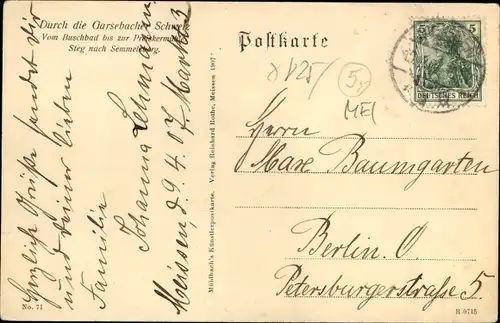 Durch die Garsebacher Schweiz
Vom Buschbad bis zur Preiskermühle
Steg nach Semmelsberg.
Postkarte
5 5
DEUTSCHES REICH
V25
5,-
MEI
Herrn
Max Baumgarten
Berlin. O.
Petersburgerstraße 5
Herzliche Grüße sendet Dir
und deiner lieben
Familie
Johanna Lehmann
Meissen, d. 9. 4. 07. Markt 3
Mühlbach's Künstlerpostkarte. Verlag Reichard Rothe, Meissen 1907.
No. 71
R 9715